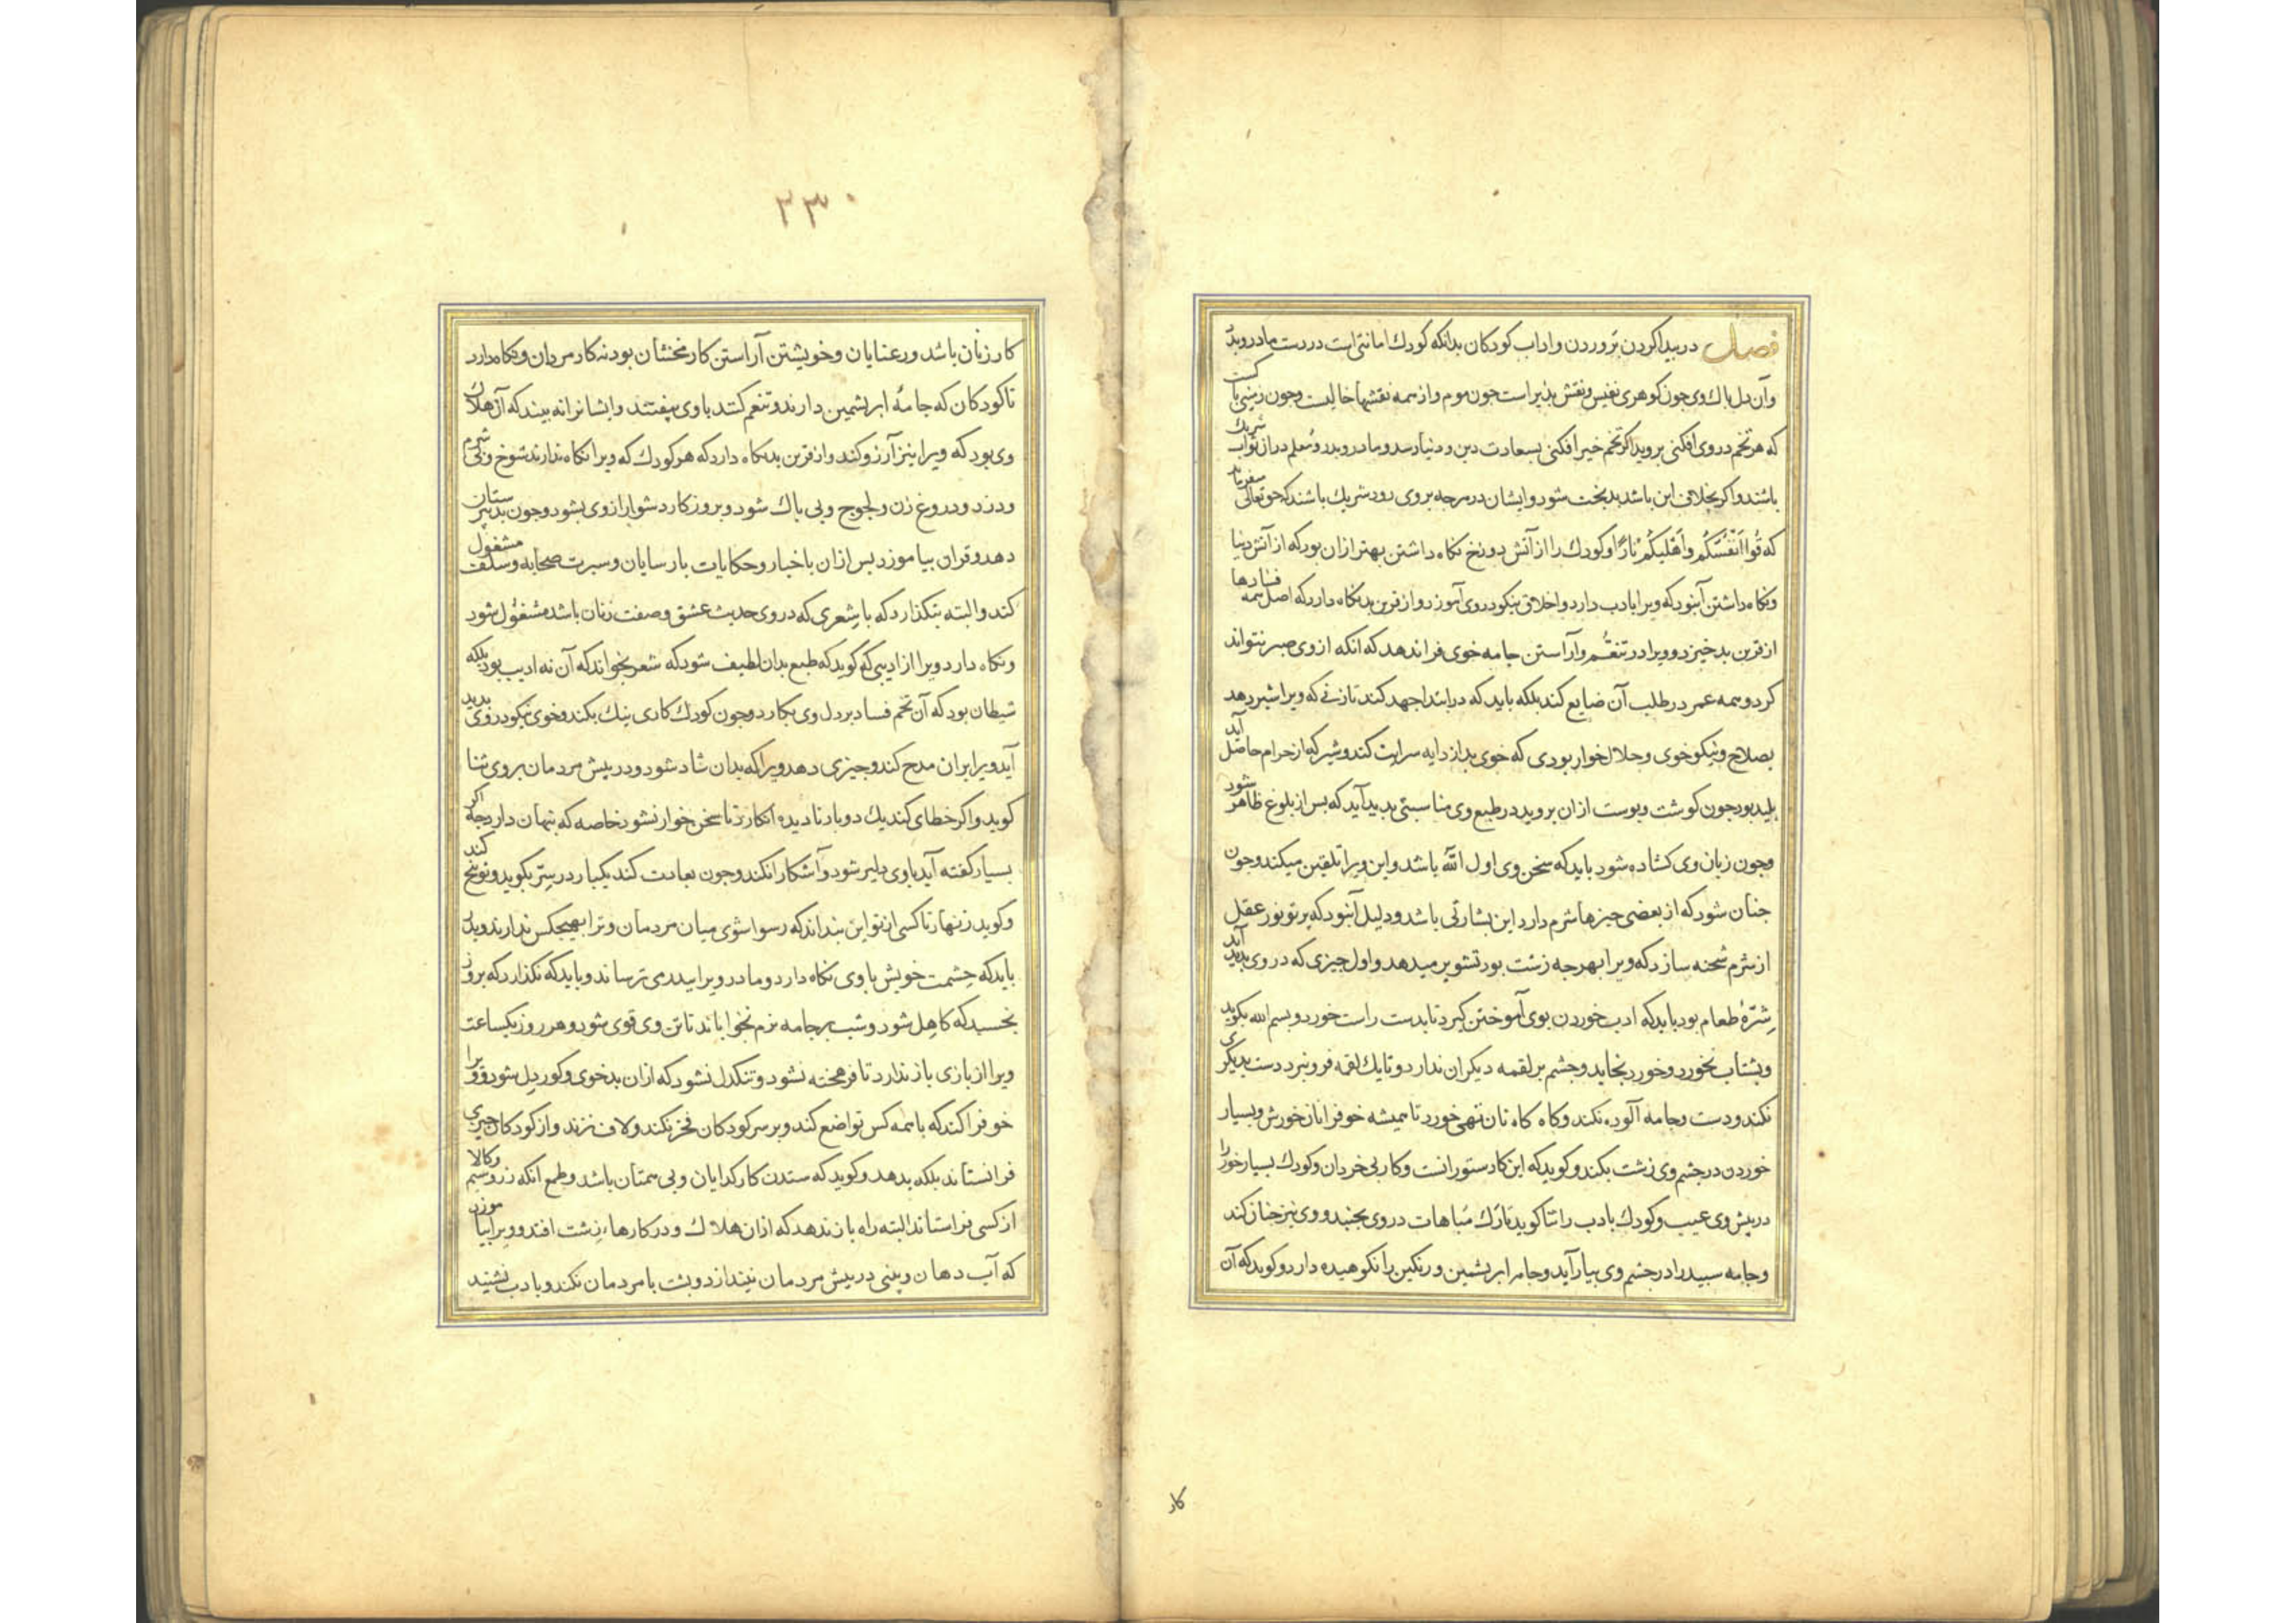 فصل در پیدا کردن پروردن و اداب کودکان بدانکه کودك امانتی است در دست مادر و پدر
وآن دل پاك وی چون کوهری نفیس و نقش پذیر است چون موم و از همه نقشها خالیست و چون زمینی پاکست
که هر تخم در وی افکنی بروید اکر تخم خیر افکنی بسعادت دین و دنیا رسد و مادر و پدر و معلم در ان ثواب شریك
باشند و اکر بخلاف این باشد بدبخت شود و ایشان در هرچه بر وی رود شریك باشند که حق تعالی میفرماید
که قُوا اَنْفُسَكُم وَاَهْليكُمْ نَارًا و کودك را از آتش دوزخ نکاه داشتن بهتر ازان بود که از آتش دنیا
و نکاه داشتن آنبود که ویرا بادب دارد و اخلاق نیکو در وی آموزد و از قرین بد نکاه دارد که اصل همه فسادها
از قرین بد خیزد و ویرا در تنعُّم و آراستن جامه خوی فرا ندهد که انکه از وی صبر نتواند
کرد و همه عمر در طلب آن ضایع کند بلکه باید که در ابتدا جهد کند تا زنی که ویرا شیر دهد
بصلاح و نیکو خوی و حلال خوار بودی که خوی بد از دایه سرایت کند و شیر که از حرام حاصل آید
پلید بود چون کوشت و پوست ازان بروید در طبع وی مناسبتی پدید آید که پس از بلوغ ظاهر شود
وچون زبان وی کشاده شود باید که سخن وی اول الله باشد و این ویرا تلقین میکند و چون
چنان شود که از بعضی چیزها شرم دارد این بشارتی باشد و دلیل آنبود که پرتو نور عقل
از شرم شحنه سازد که ویرا بهرچه زشت بود تشویر میدهد و اول چیزی که در وی پدید آید
شِرّۀ طعام بود باید که ادب خوردن بوی آموختن کیرد تا بدست راست خورد و بسم الله بکوید
وبشتاب نخورد و خورد بخاید و چشم بر لقمه دیکران ندارد و تا یك لقمه فرو نبرد دست بدیکری
نکند و دست و جامه آلوده نکند و کاه کاه نان تهی خورد تا همیشه خو فرا نان خورش و بسیار
خوردن در چشم وی زشت بکند و کوید که این کار ستورانست و کار بی خردان و کودك بسیار خوار را
در پیش وی عیب و کودك بادب را ثنا کوید تارَك مُباهات در وی بجنبد و وی نیز چنان کند
و جامه سپید را در چشم وی بیاراید و جامه ابریشمین و رنکین را نکوهیده دارد و کوید که آن
کار
۲۳۰
کار زنان باشد و رعنایان و خویشتن آراستن کار مخنثان بود نه کار مردان و نکاه دارد
تا کودکان که جامۀ ابریشمین دارند و تنعم کنند باوی نیفتند و ایشانرا نه بیند که آن هلاك
وی بود که ویرا نیز آرزو کند و از قرین بد نکاه دارد که هر کودك که ویرا نکاه ندارند شوخ و بی شرم
و دزد و دروغ زن و لجوج و بی باك شود و بروزکار دشوار از وی بشود و چون بدبیرستان
دهد و قران بیاموزد پس ازان باخبار و حکایات پارسایان و سیرت صحابه و سلف مشغول
کند و البته بنکذارد که باشعری که در وی حدیث عشق و صفت زنان باشد مشغُول شود
و نکاه دارد ویرا از ادیبی که کوید که طبع بدان لطیف شود که شعر بخواند که آن نه ادیب بود بلکه
شیطان بود که آن تخم فساد در دل وی بکارد و چون کودك کاری نیك بکند و خوی نیکو در وی پدید
آید ویرا بران مدح کند و چیزی دهد ویرا که بدان شاد شود و در پیش مردمان بر وی ثنا
کوید و اکر خطای کند یك دو بار نادیده انکارد تا سخن خوار نشود خاصه که پنهان دارد چه اکر
بسیار کفته آید باوی دلیر شود و آشکارا نکند و چون بعادت کند یکبار در سِرّ بکوید و توبیخ کند
و کوید زنهار تا کسی از تو این نبداند که رسوا شوی میان مردمان و ترا بهیچکس ندارند و پدر
باید که حِشمت خویش باوی نکاه دارد و مادر ویرا بپدر می ترساند و باید که نکذارد که بروز
بخسبد که کاهِل شود و شب بر جامه نرم نخواباند تا تن وی قوی شود و هر روز یکساعت
ویرا از بازی باز ندارد تا فرهخته نشود و تنکدل نشود که ازان بدخوی و کوردل شود و ویرا
خو فرا کند که باهمه کس تواضع کند و بر سر کودکان فخر نکند و لاف نزند و از کودکان چیزی
فرا نستاند بلکه بدهد و کوید که ستدن کار کدایان و بی همتان باشد و طمع انکه زر و سیم و کالا
از کسی فراستاند البته راه باز ندهد که ازان هلاك و در کارهاء زشت افتد و ویرا بیاموزد
که آب دهان و بینی در پیش مردمان نیندازد و پشت با مردمان نکند و بادب نشیند